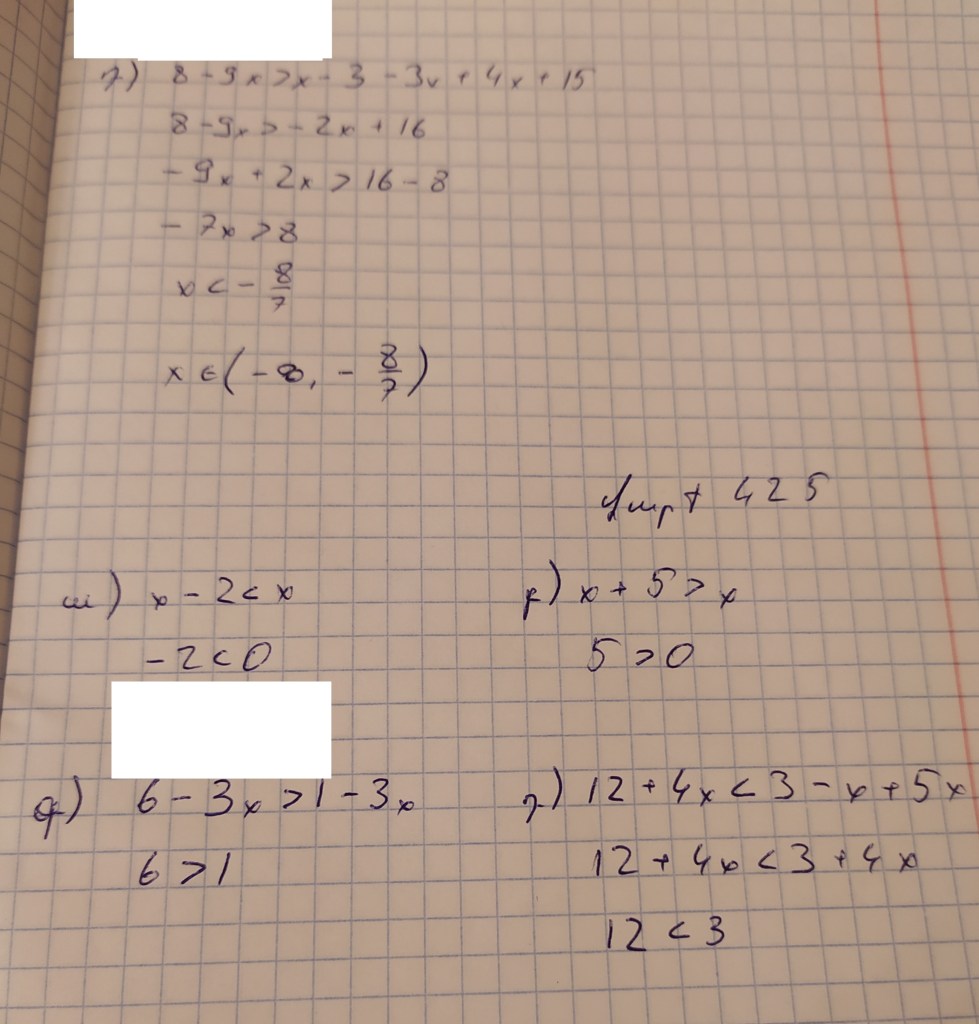 г) 8 - 9x > x - 3 - 3x + 4x + 15
8 - 9x > - 2x + 16
- 9x + 2x > 16 - 8
- 7x > 8
x < - 8/7
x ∈ (-∞, - 8/7)
425
x - 2 < x
- 2 < 0
x + 5 > x
5 > 0
6 - 3x > 1 - 3x
6 > 1
г) 12 + 4x < 3 - x + 5x
12 + 4x < 3 + 4x
12 < 3